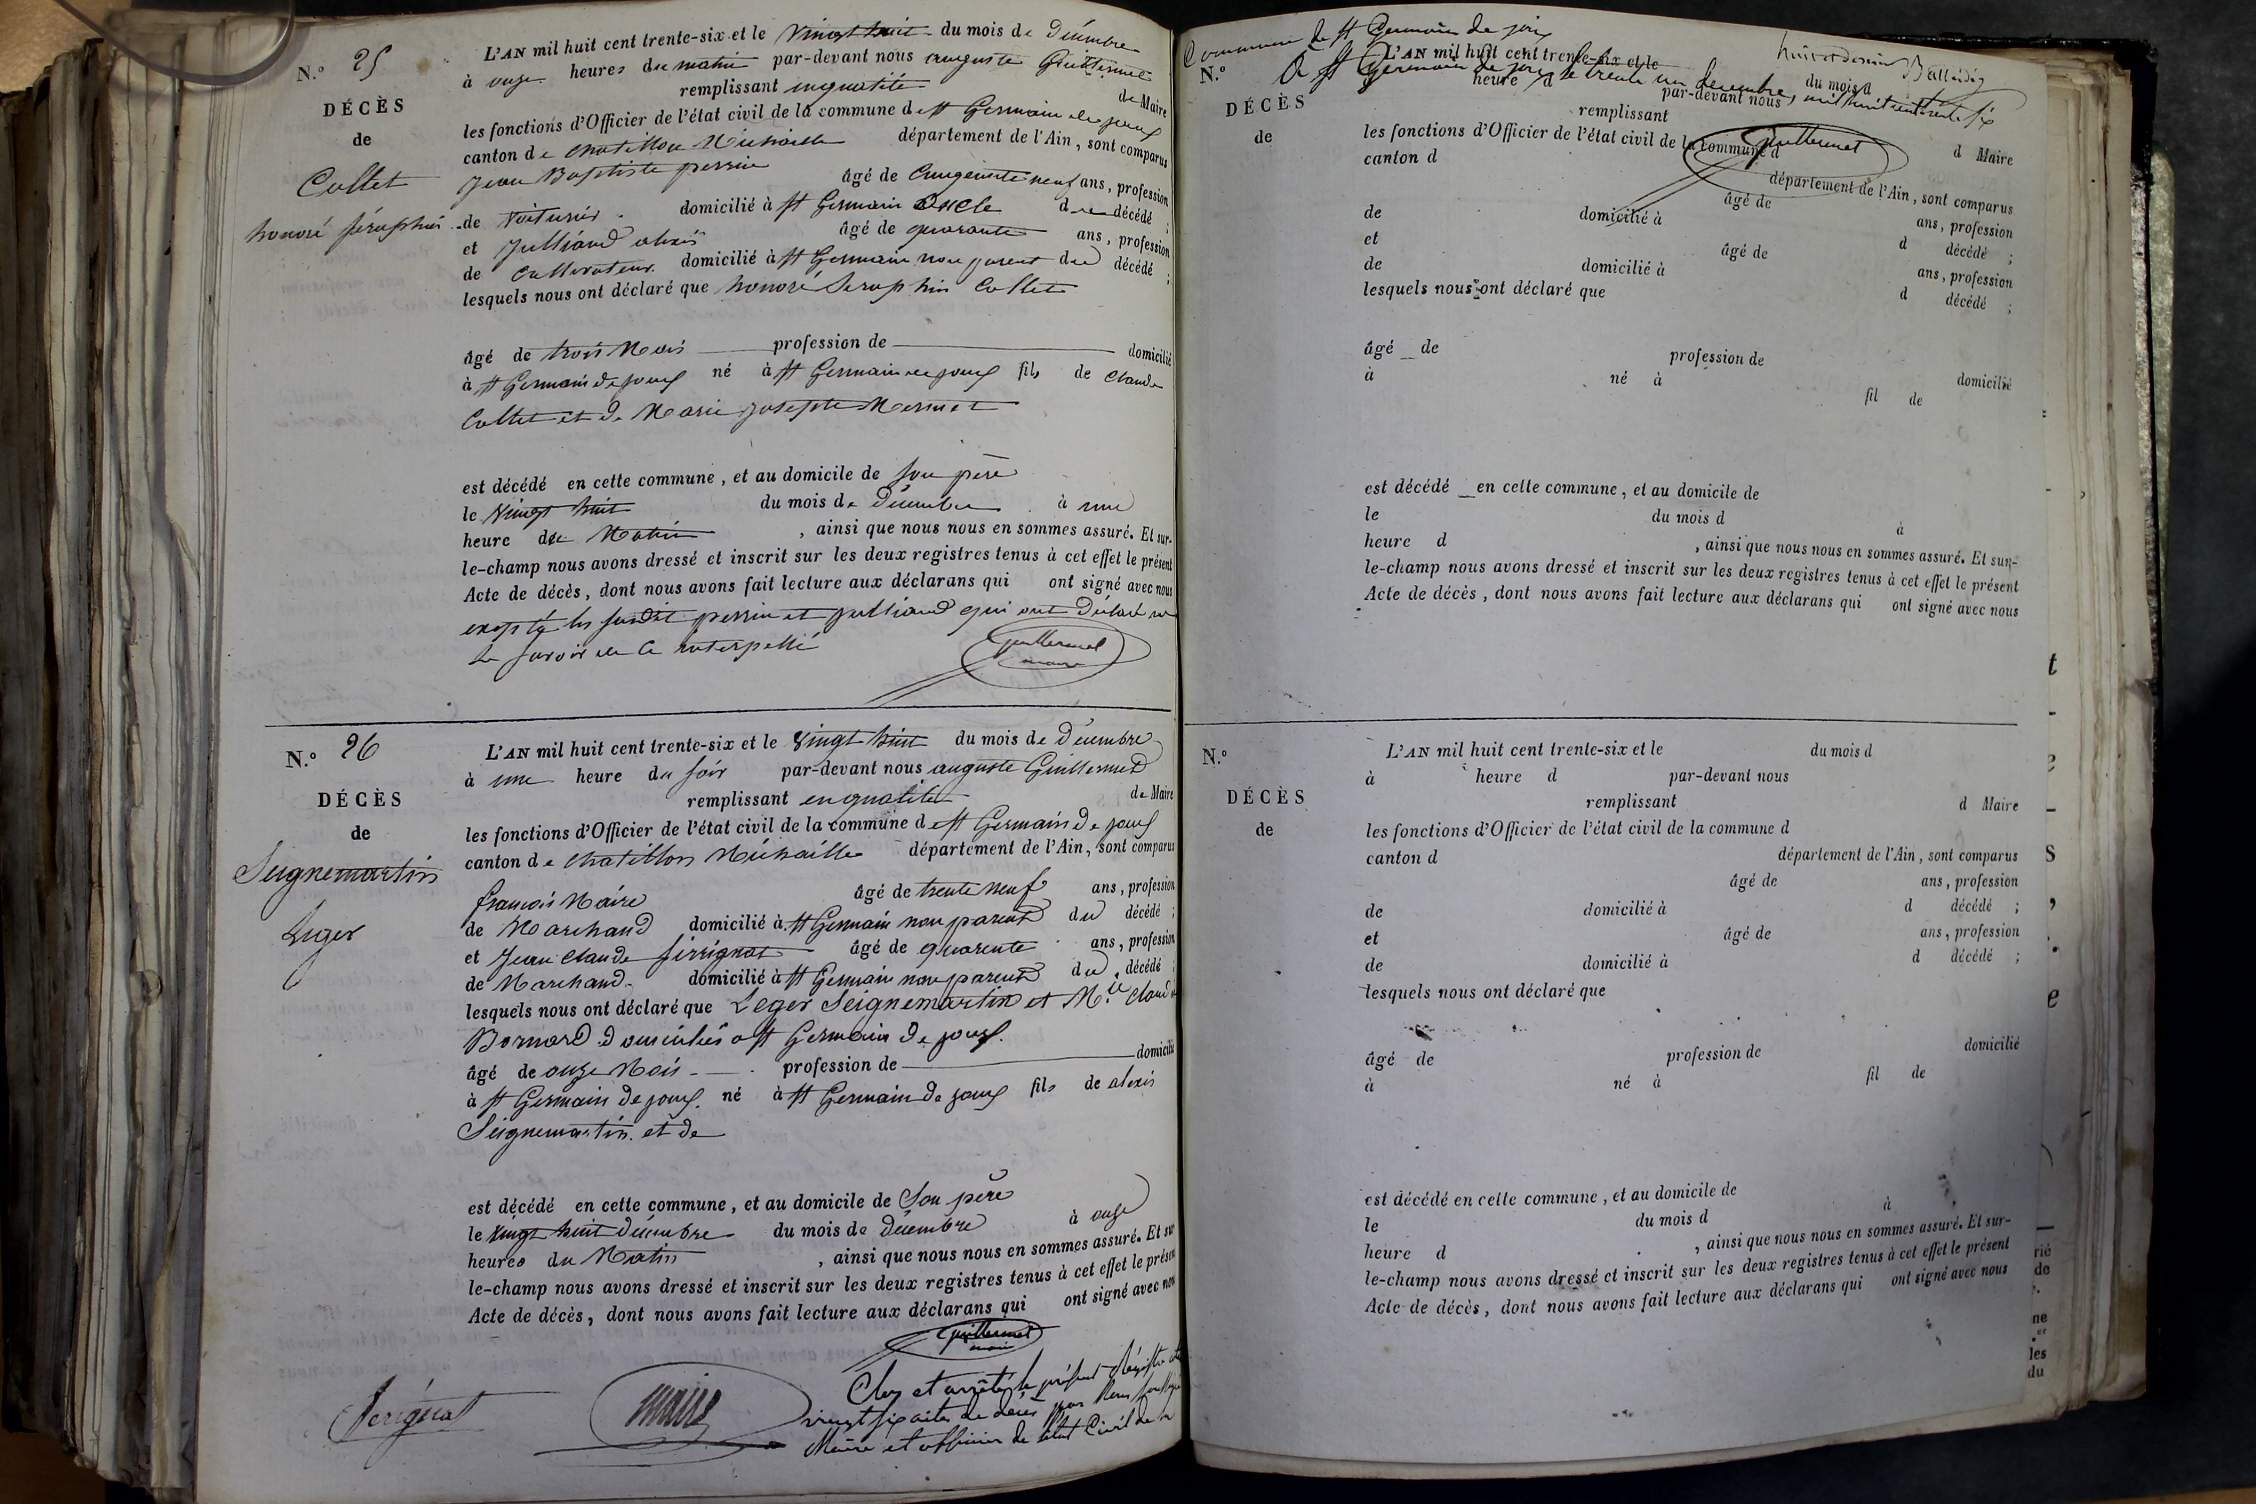 N.° 25
DÉCÈS
de
Collet
honoré séraphin
L'AN mil huit cent trente-six et le vingt huit du mois de Décembre
à onze heures du matin par-devant nous auguste Guillermet
remplissant en qualité de Maire
les fonctions d'Officier de l'état civil de la commune de st Germain de joux
canton de chatillon Michaille département de l'Ain, sont comparus
Jean Baptiste perrin âgé de Cinquante neuf ans, profession
de voiturier domicilié à st Germain oncle du décédé ;
et Julliand alexis âgé de quarante ans, profession
de Cultivateur domicilié à st Germain non parent du décédé ;
lesquels nous ont déclaré que honoré Seraphin Collet
âgé de trois Mois profession de domicilié
à st Germain de joux né à st Germain de joux fils de Claude
Collet et de Marie josephte Mermet
est décédé en cette commune, et au domicile de son père
le vingt huit du mois de Décembre à une
heure du Matin , ainsi que nous nous en sommes assuré. Et sur-
le-champ nous avons dressé et inscrit sur les deux registres tenus à cet effet le présent
Acte de décès, dont nous avons fait lecture aux déclarans qui ont signé avec nous
excepté les susdit perrin et julliand qui ont déclaré ne
le savoir de ce interpellé
guillermet
maire
N.° 26
DÉCÈS
de
Seignemartin
Leger
L'AN mil huit cent trente-six et le vingt huit du mois de Décembre
à une heure du soir par-devant nous auguste Guillermet
remplissant en qualité de Maire
les fonctions d'Officier de l'état civil de la commune de st Germain de joux
canton de chatillon Michaille département de l'Ain, sont comparus
françois Maire âgé de trente neuf ans, profession
de Marchand domicilié à st Germain non parent du décédé ;
et Jean Claude Serrignat âgé de quarente ans, profession
de Marchand domicilié à st Germain non parent du décédé ;
lesquels nous ont déclaré que Leger Seignemartin et M.ie Claud
Bornard domiciliés a st Germain de joux
âgé de onze Mois profession de domicilié
à st Germain de joux né à st Germain de joux fils de alexis
Seignemartin et de
est décédé en cette commune, et au domicile de Son père
le vingt huit décembre du mois de Décembre à onze
heures du Matin , ainsi que nous nous en sommes assuré. Et sur
le-champ nous avons dressé et inscrit sur les deux registres tenus à cet effet le présen
Acte de décès, dont nous avons fait lecture aux déclarans qui ont signé avec nou
guillermet
maire
Serignat
maire
Clos et arrêté le présent Régistre
vingt six actes de décès par Nous
Maire et officier de l'état Civil de la
Commune de st Germain de joux
A st Germain de joux le trente un decembre mil huit cent trente six
guillermet
huit et dernier
N.°
DÉCÈS
de
L'AN mil huit cent trente-six et le du mois d
à heure d par-devant nous
remplissant d Maire
les fonctions d'Officier de l'état civil de la commune d
canton d département de l'Ain, sont comparus
âgé de ans, profession
de domicilié à d décédé ;
et âgé de ans, profession
de domicilié à d décédé ;
lesquels nous ont déclaré que
âgé de profession de domicilié
à né à fil de
est décédé en cette commune, et au domicile de
le du mois d à
heure d , ainsi que nous nous en sommes assuré. Et sur-
le-champ nous avons dressé et inscrit sur les deux registres tenus à cet effet le présent
Acte de décès, dont nous avons fait lecture aux déclarans qui ont signé avec nous
N.°
DÉCÈS
de
L'AN mil huit cent trente-six et le du mois d
à heure d par-devant nous
remplissant d Maire
les fonctions d'Officier de l'état civil de la commune d
canton d département de l'Ain, sont comparus
âgé de ans, profession
de domicilié à d décédé ;
et âgé de ans, profession
de domicilié à d décédé ;
lesquels nous ont déclaré que
âgé de profession de domicilié
à né à fil de
est décédé en cette commune, et au domicile de
le du mois d à
heure d , ainsi que nous nous en sommes assuré. Et sur-
le-champ nous avons dressé et inscrit sur les deux registres tenus à cet effet le présent
Acte de décès, dont nous avons fait lecture aux déclarans qui ont signé avec nous